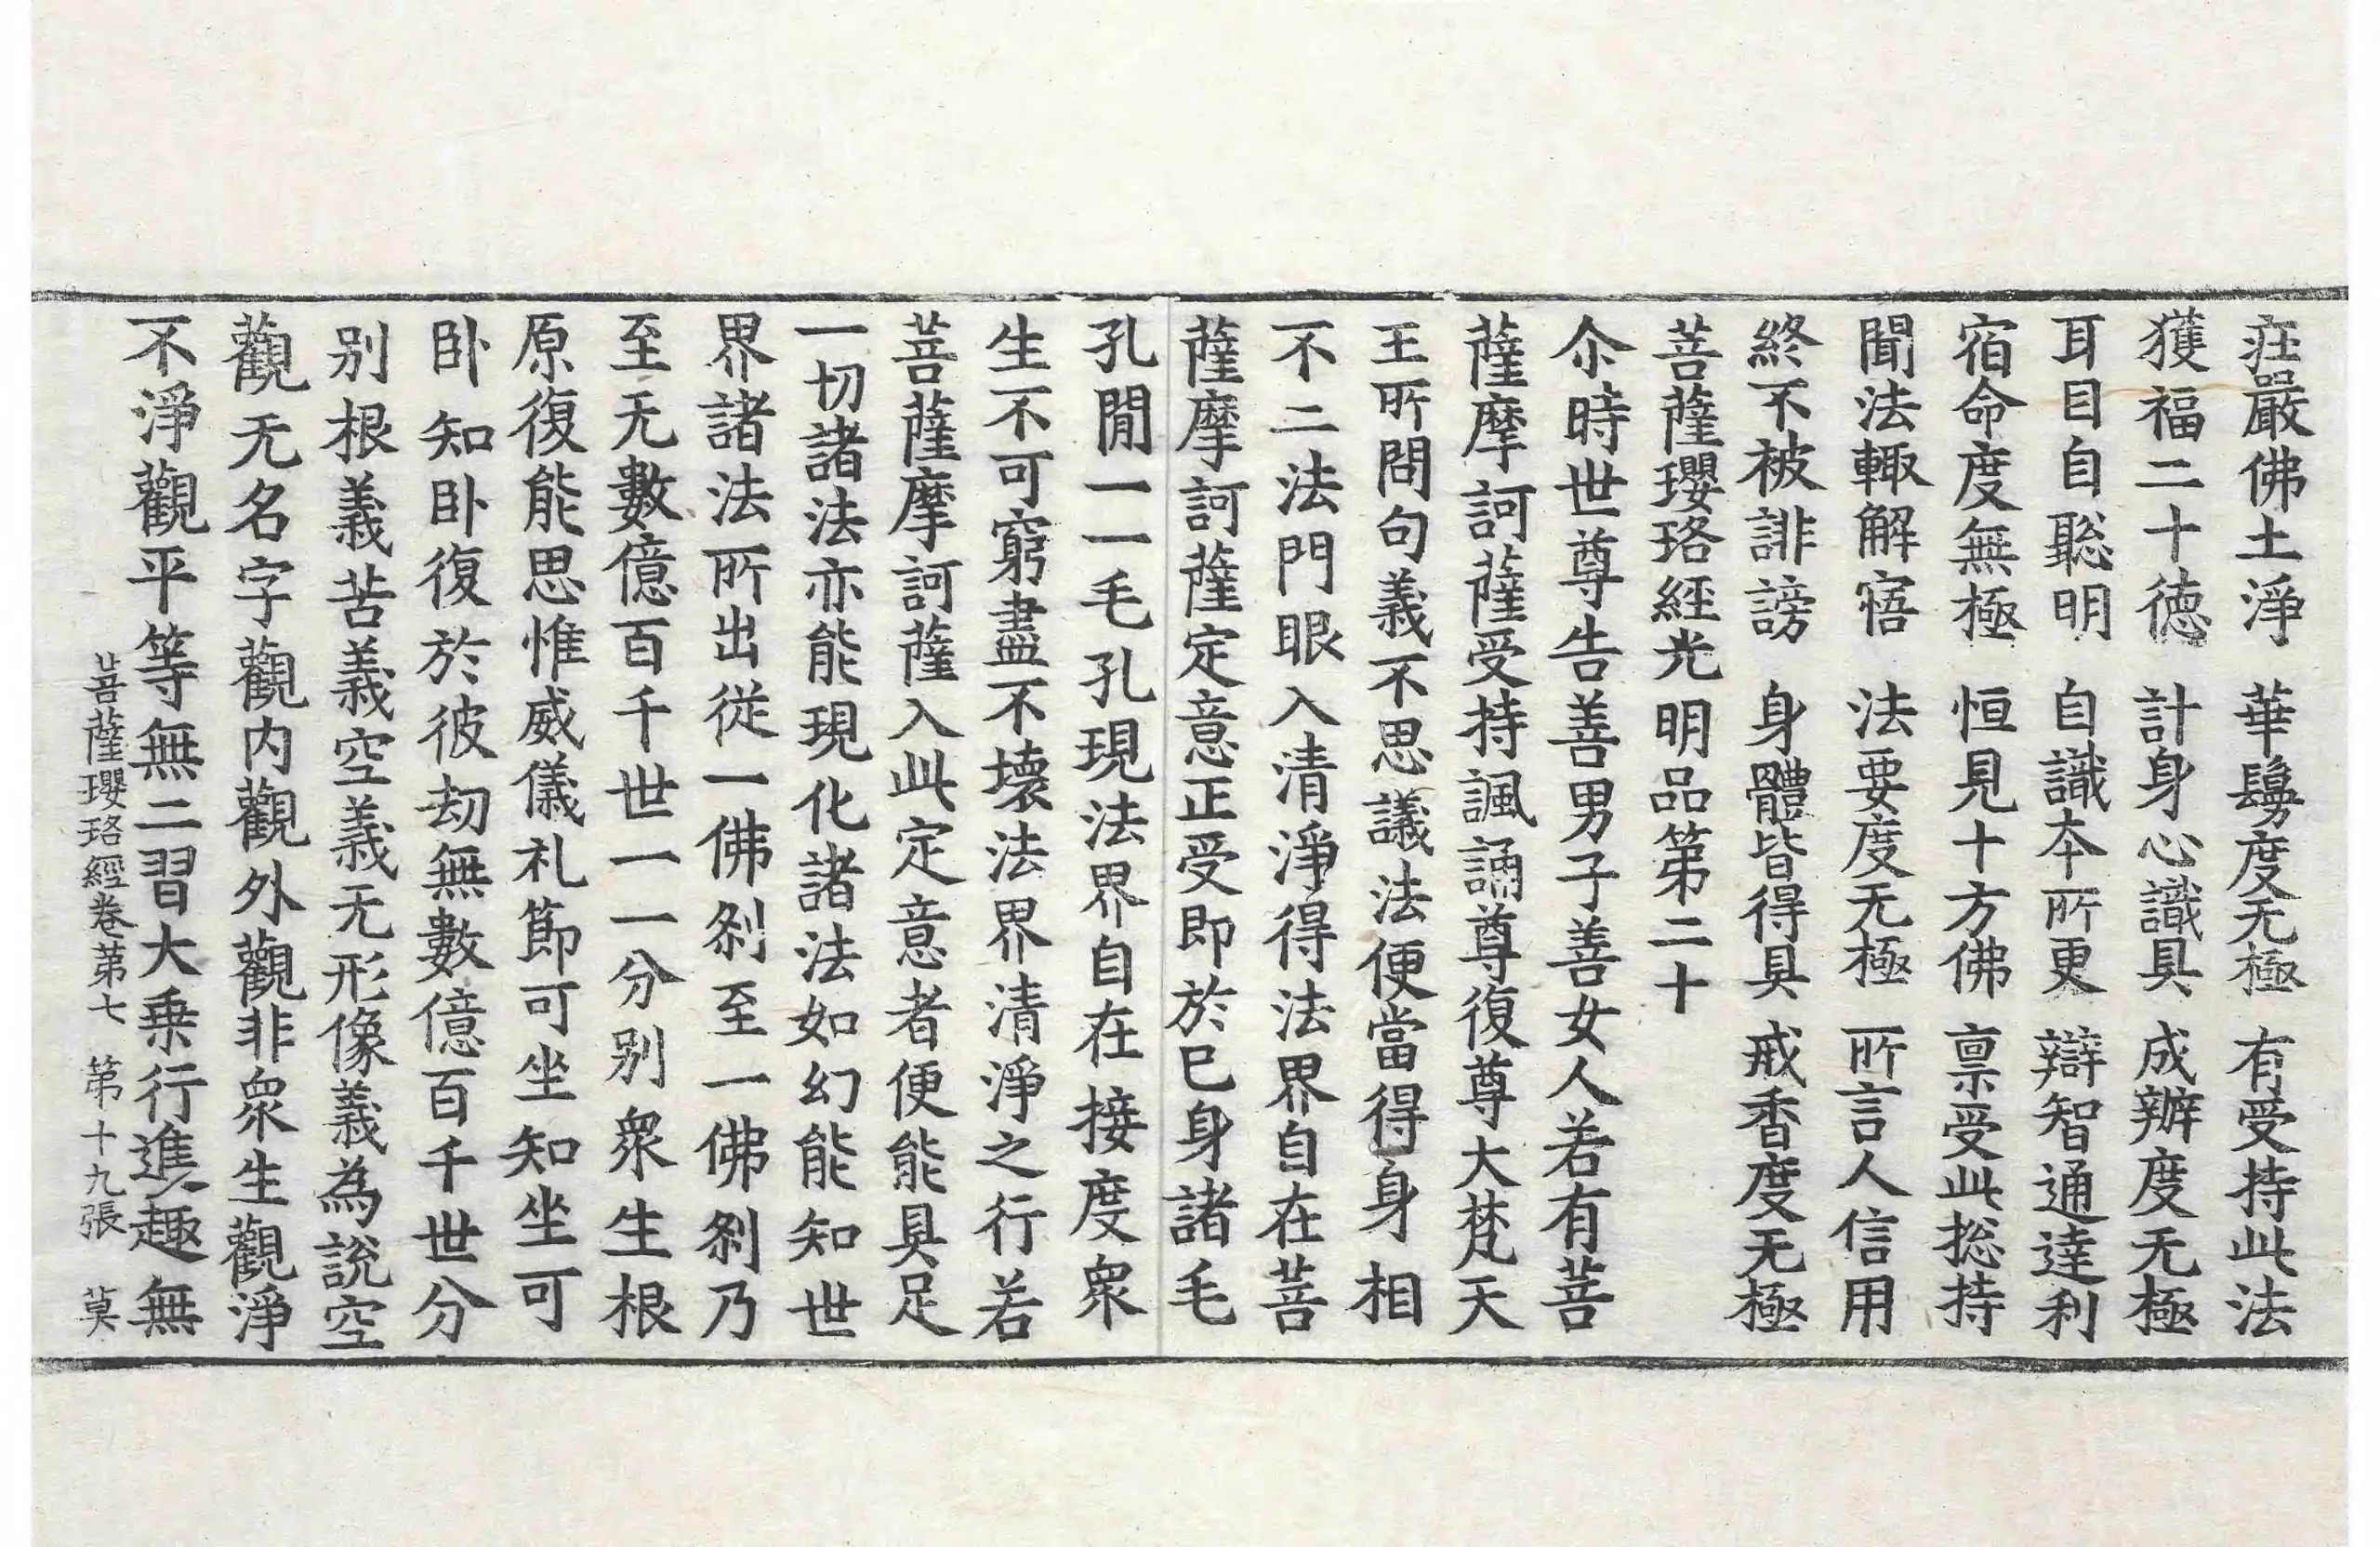 疰嚴佛土淨　華鬘度无極　有受持此法
獲福二十徳　計身心識具　成辦度无極
耳目自聡明　自識本所更　辯智通達利
宿命度無極　恒見十方佛　禀受此揔持
聞法輙解寤　法要度无極　所言人信用
終不被誹謗　身體皆得具　戒香度无極
菩薩瓔珞經光明品第二十
尒時世尊告善男子善女人若有菩
薩摩訶薩受持諷誦尊復尊大梵天
王所問句義不思議法便當得身相
不二法門眼入清淨得法界自在菩
薩摩訶薩定意正受即於已身諸毛
孔閒一一毛孔現法界自在接度衆
生不可窮盡不壞法界清淨之行若
菩薩摩訶薩入此定意者便能具足
一切諸法亦能現化諸法如幻能知世
界諸法所出從一佛刹至一佛刹乃
至无數億百千世一一分别衆生根
原復能思惟威儀礼節可坐知坐可
卧知卧復於彼劫無數億百千世分
别根義苦義空義无形像義為說空
觀无名字觀内觀外觀非衆生觀淨
不淨觀平等無二習大乗行進趣無
菩薩瓔珞經卷苐七　第十九張　莫